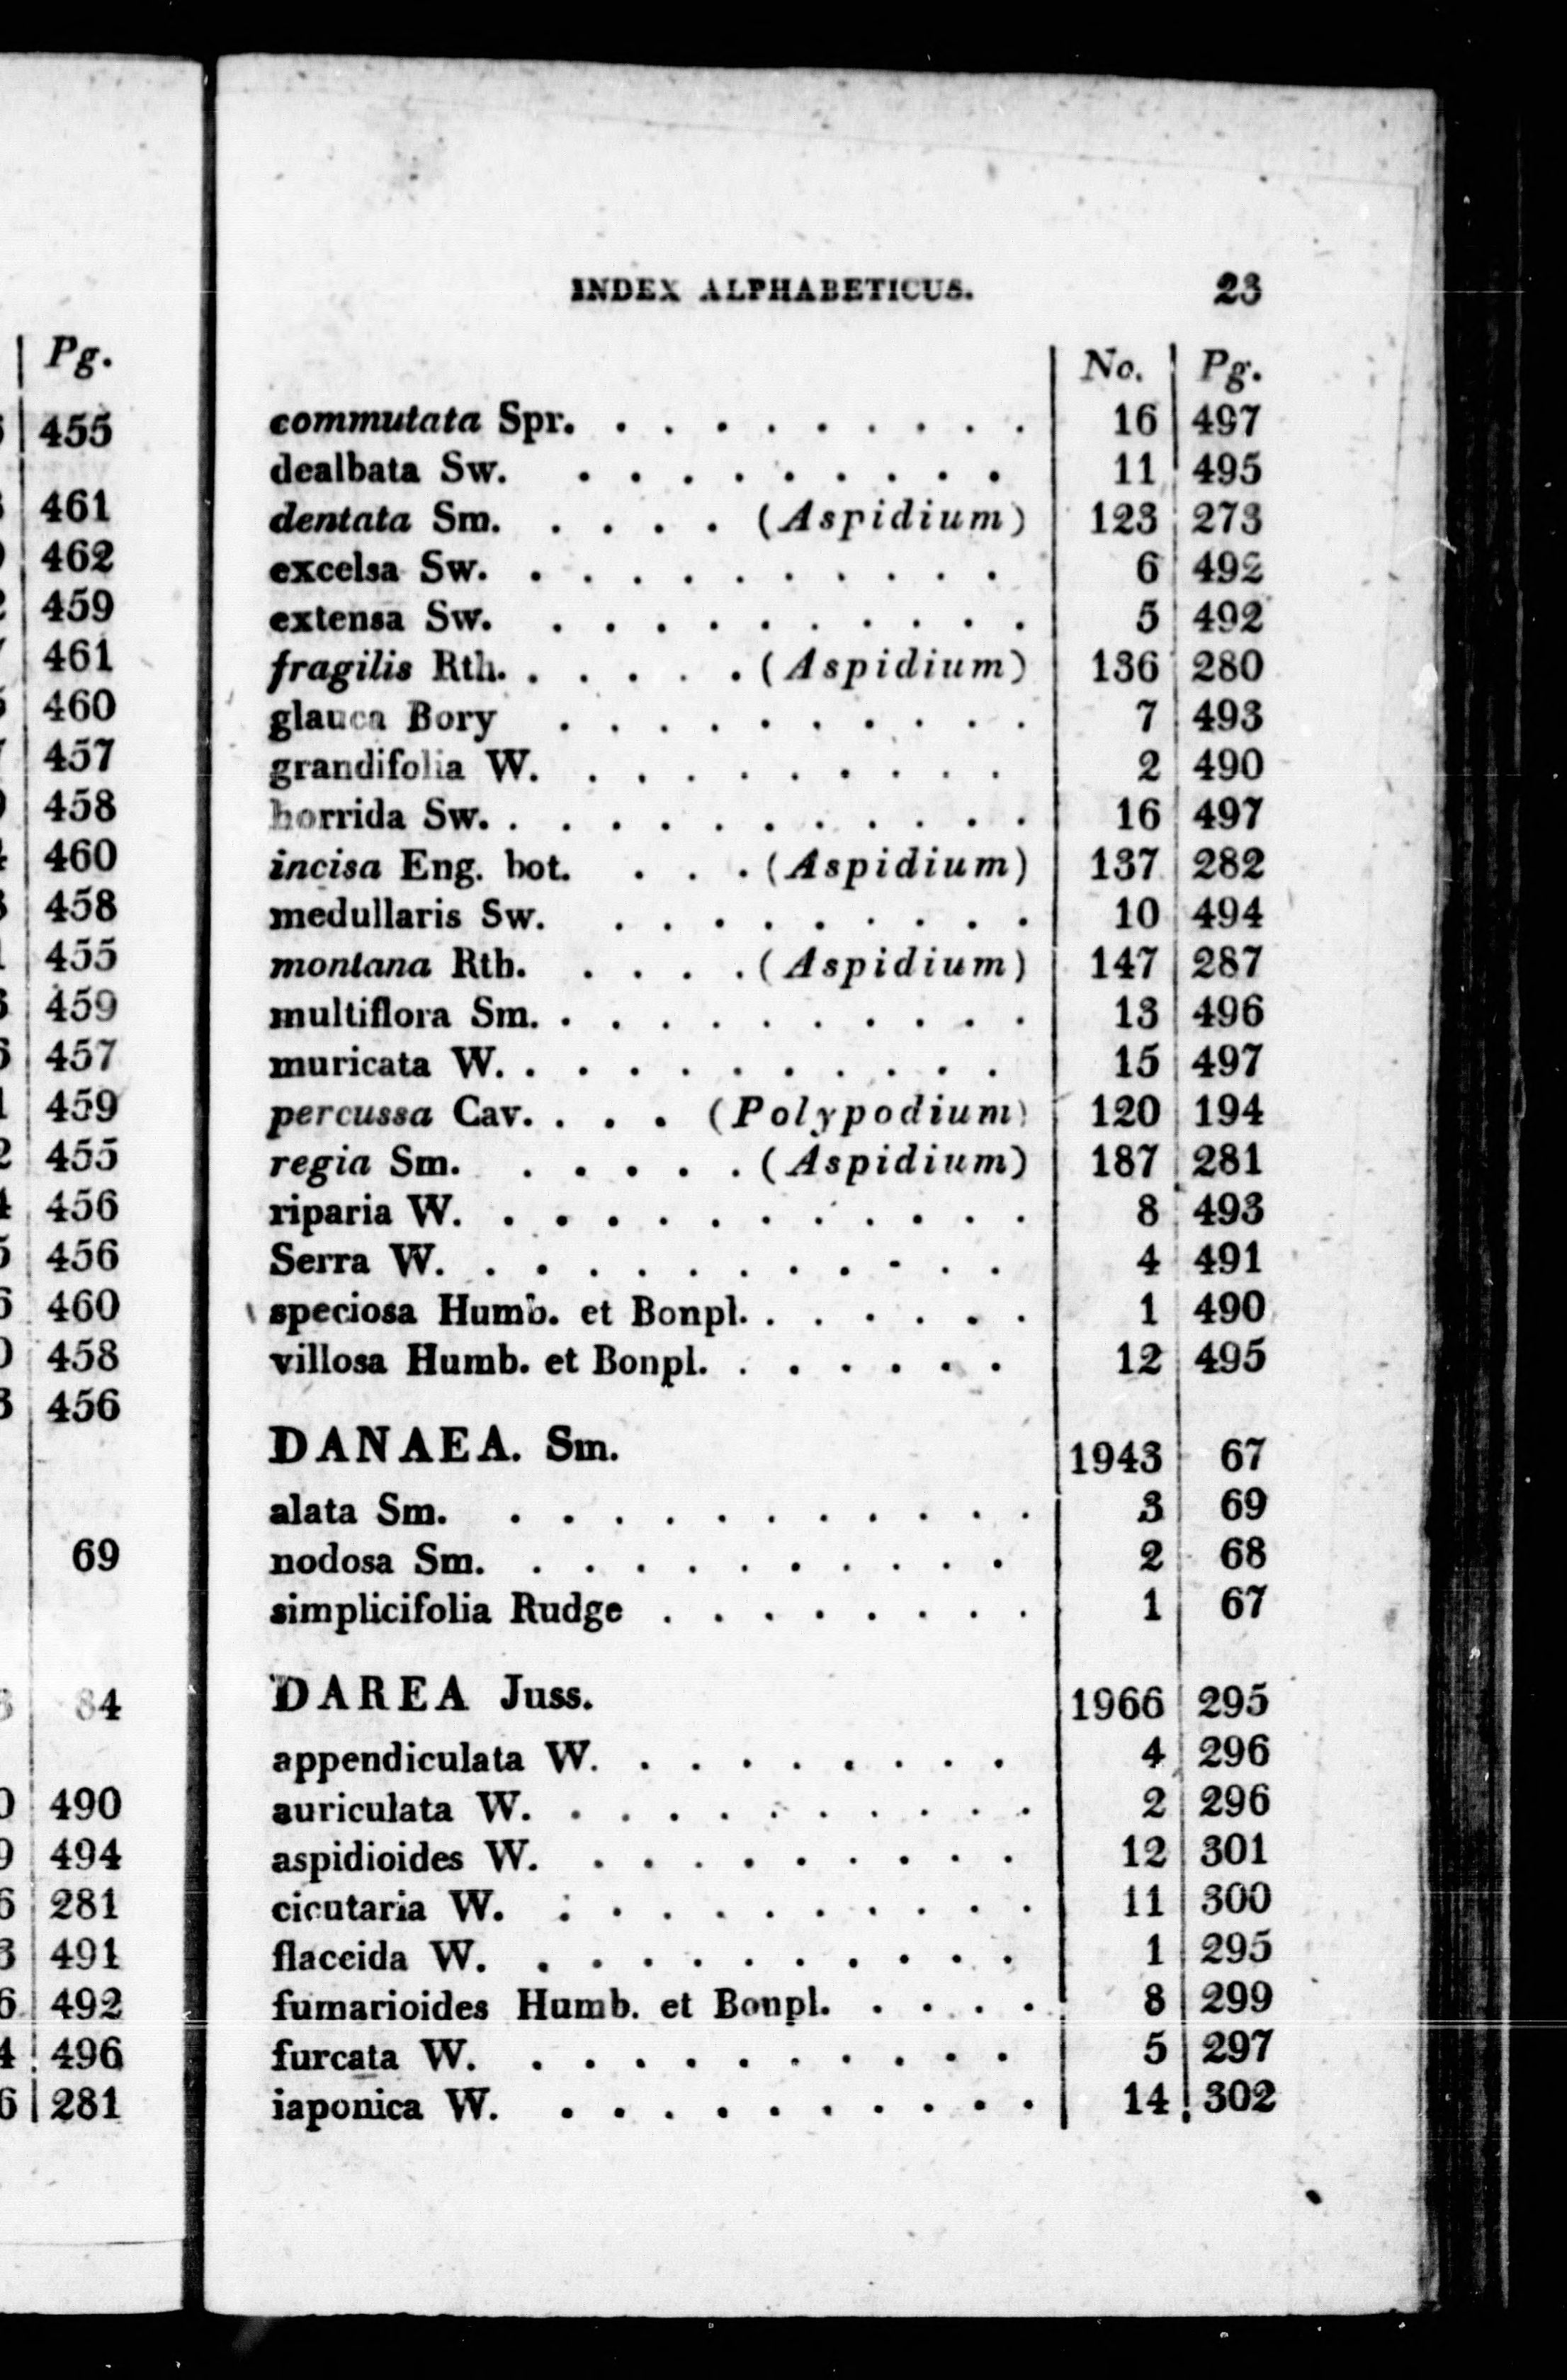 Pg.
455
461
462
459
461
460
457
458
460
458
455
459
457
459
455
456
456
460
458
456
69
84
490
494
281
491
492
496
281
INDEX ALPHABETICUS. 23
No. Pg.
commutata Spr. . . . . . . . . . 16 497
dealbata Sw. . . . . . . . . . 11 495
dentata Sm. . . . . (Aspidium) 123 273
excelsa Sw. . . . . . . . . . . 6 492
extensa Sw. . . . . . . . . . . 5 492
fragilis Rth. . . . . . (Aspidium) 136 280
glauca Bory . . . . . . . . . . 7 493
grandifolia W. . . . . . . . . . 2 490
horrida Sw. . . . . . . . . . . . 16 497
incisa Eng. bot. . . . (Aspidium) 137 282
medullaris Sw. . . . . . . . . . 10 494
montana Rth. . . . . (Aspidium) 147 287
multiflora Sm. . . . . . . . . . . 13 496
muricata W. . . . . . . . . . . 15 497
percussa Cav. . . . (Polypodium) 120 194
regia Sm. . . . . . (Aspidium) 187 281
riparia W. . . . . . . . . . . . 8 493
Serra W. . . . . . . . . . . . 4 491
speciosa Humb. et Bonpl. . . . . . . 1 490
villosa Humb. et Bonpl. . . . . . . 12 495
DANAEA. Sm. 1943 67
alata Sm. . . . . . . . . . . . 3 69
nodosa Sm. . . . . . . . . . . 2 68
simplicifolia Rudge . . . . . . . . 1 67
DAREA Juss. 1966 295
appendiculata W. . . . . . . . . 4 296
auriculata W. . . . . . . . . . . 2 296
aspidioides W. . . . . . . . . . 12 301
cicutaria W. : . . . . . . . . . 11 300
flaccida W. . . . . . . . . . . 1 295
fumarioides Humb. et Bonpl. . . . . 8 299
furcata W. . . . . . . . . . . 5 297
iaponica W. . . . . . . . . . . 14 302